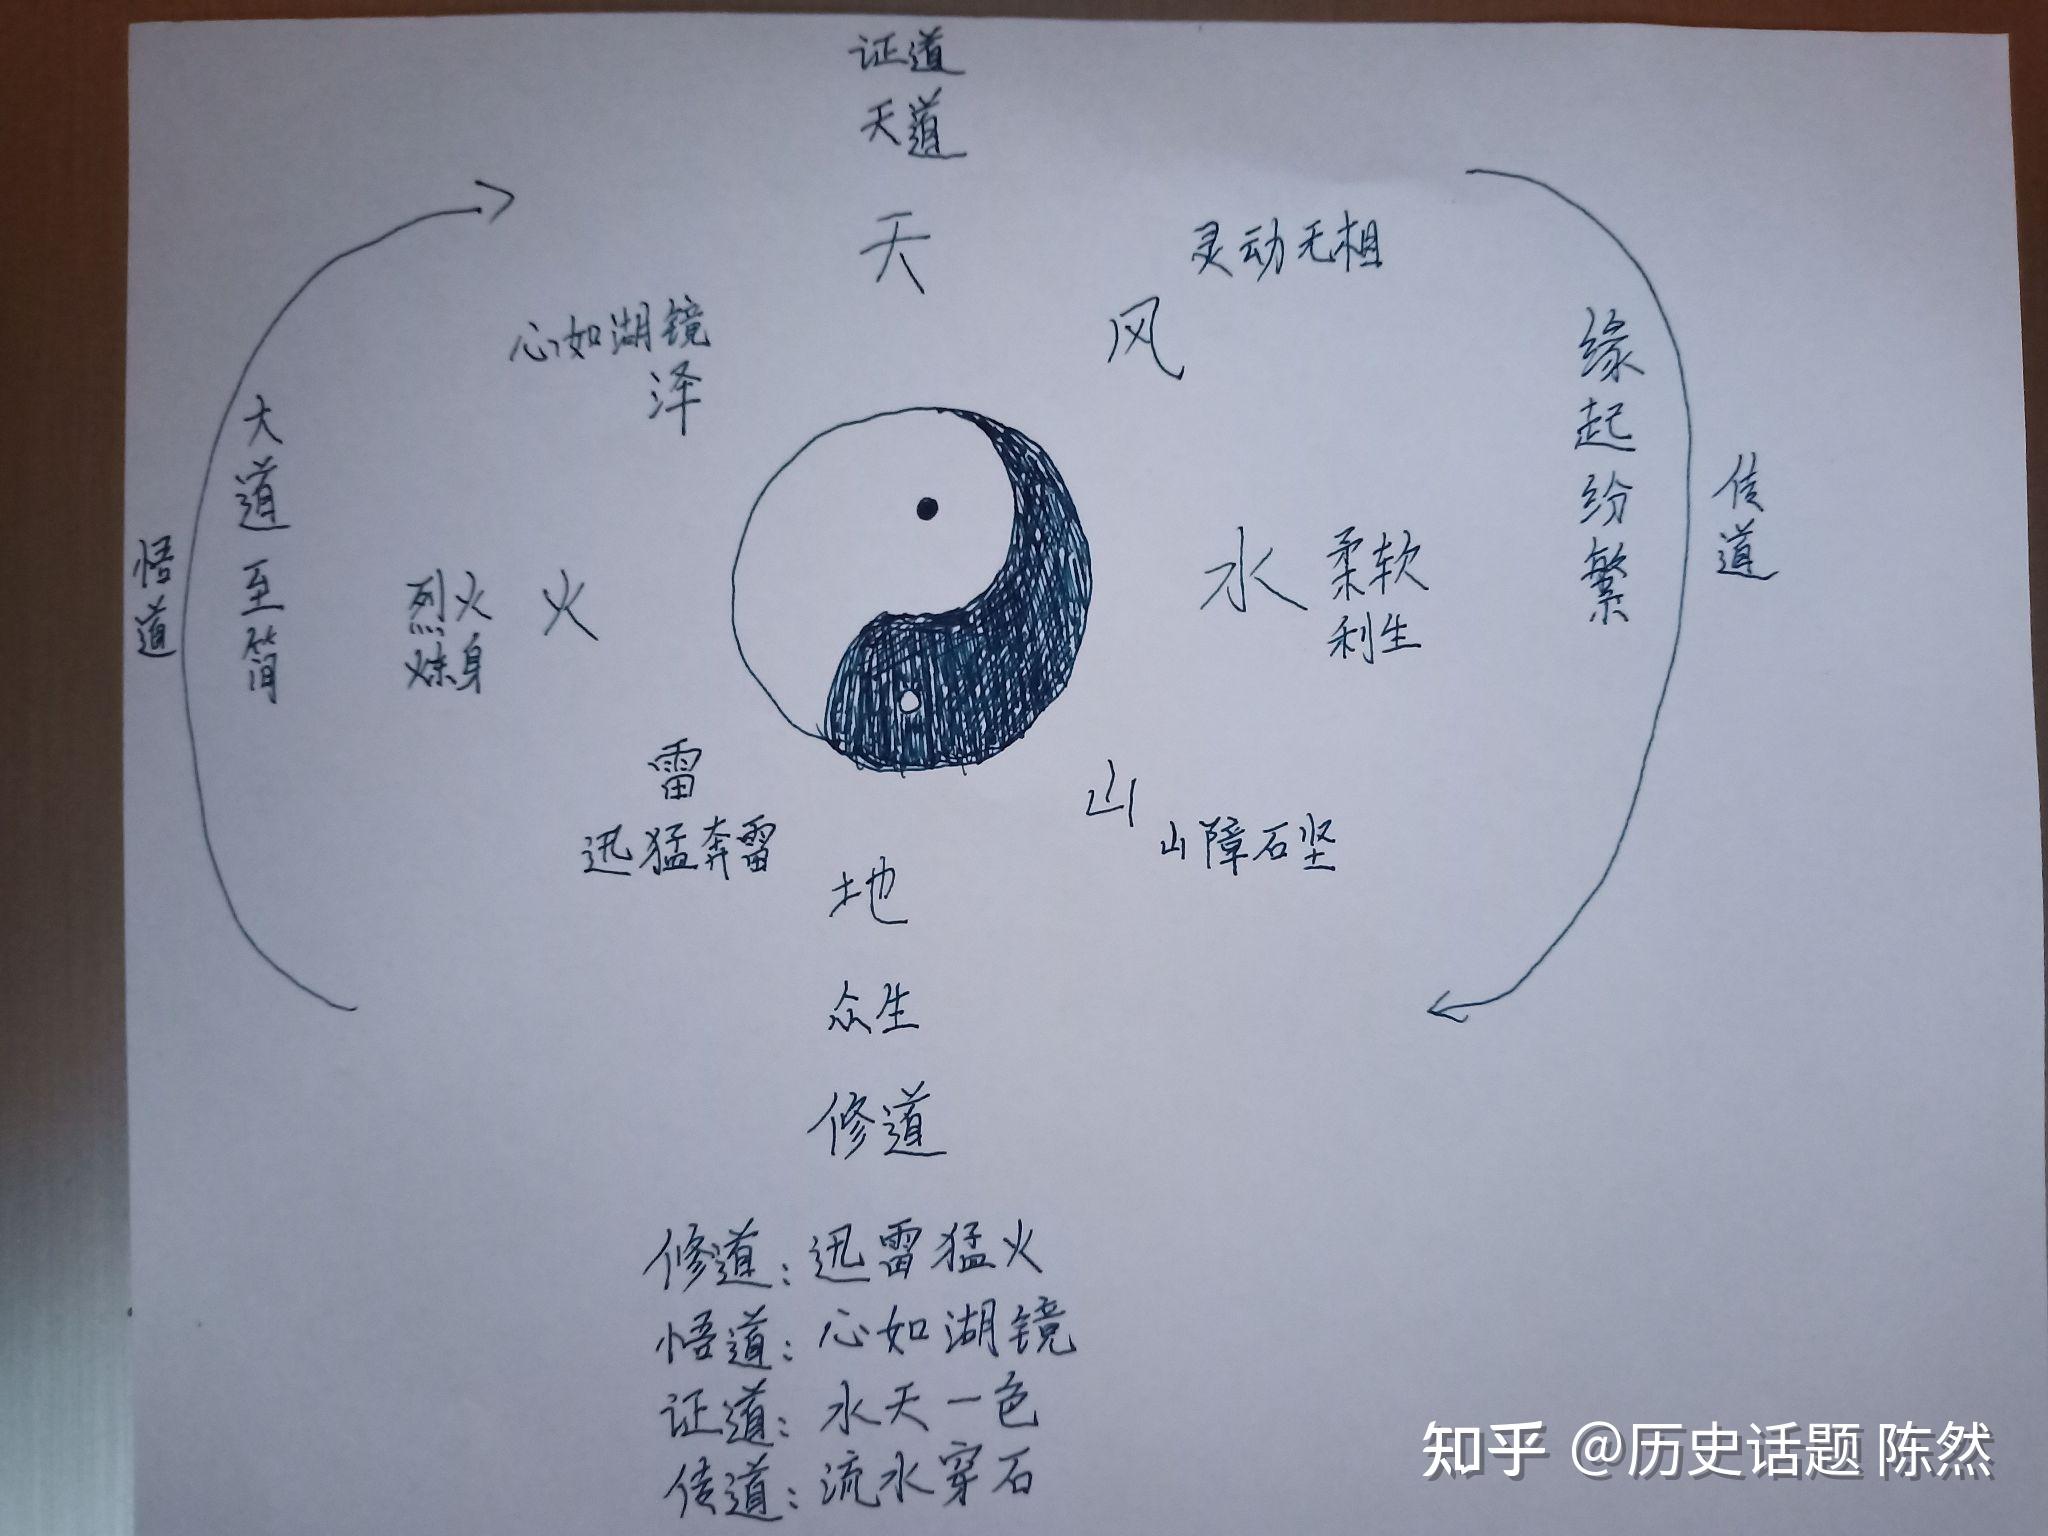 证道
天道
天
灵动无相
风
心如湖镜
泽
缘起纷繁
传道
大道至简
悟道
烈火
炼身
火
水
柔软
利生
雷
迅猛奔雷
山
山障石坚
地
众生
修道
修道：迅雷猛火
悟道：心如湖镜
证道：水天一色
传道：流水穿石
知乎 @历史话题 陈然